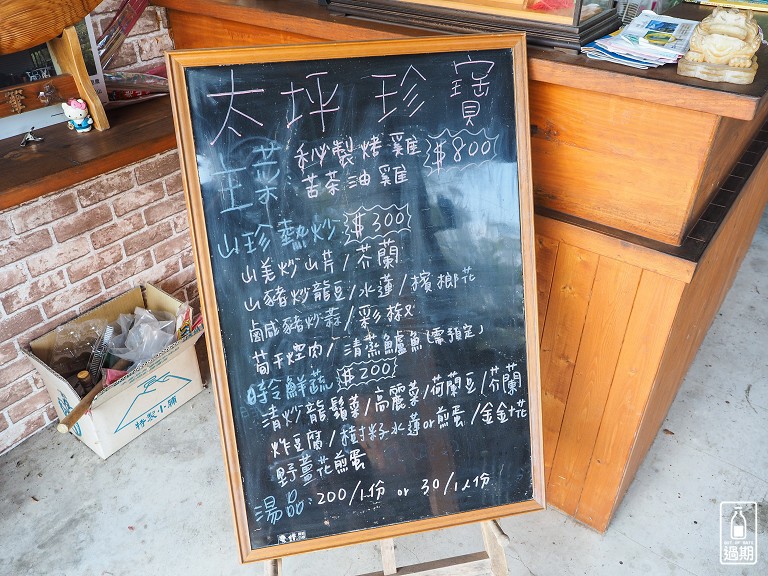 太坪珍寶
主菜: 秘製烤雞 $800
苦茶油雞
山珍熱炒 $300
山羌炒山芹/芥蘭
山豬炒龍豆/水蓮/檳榔花
鹹豬炒蒜/彩椒
筍干焢肉/清蒸鱸魚「需預定」
時令鮮蔬 $200
清炒龍鬚菜/高麗菜/荷蘭豆/芥蘭
炸豆腐/樹籽水蓮or煎蛋/金針花
野薑花煎蛋
湯品: 200/1份 or 30/1人份
特製小舖
過期